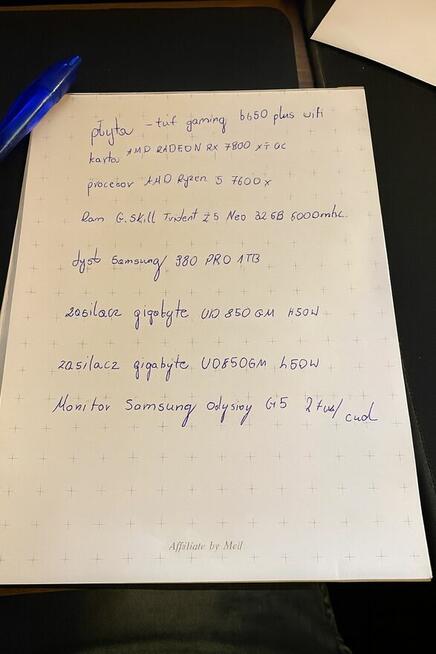 płyta - tuf gaming b650 plus wifi
karta AMD RADEON RX 7800 XT OC
procesor AMD Ryzen 5 7600x
Ram G.Skill Trident Z5 Neo 32GB 6000mhz
dysk Samsung 980 PRO 1TB
zasilacz gigabyte UD 850 GM
zasilacz gigabyte UD850GM
Monitor Samsung Odysioy G5
Affiliate by Meil